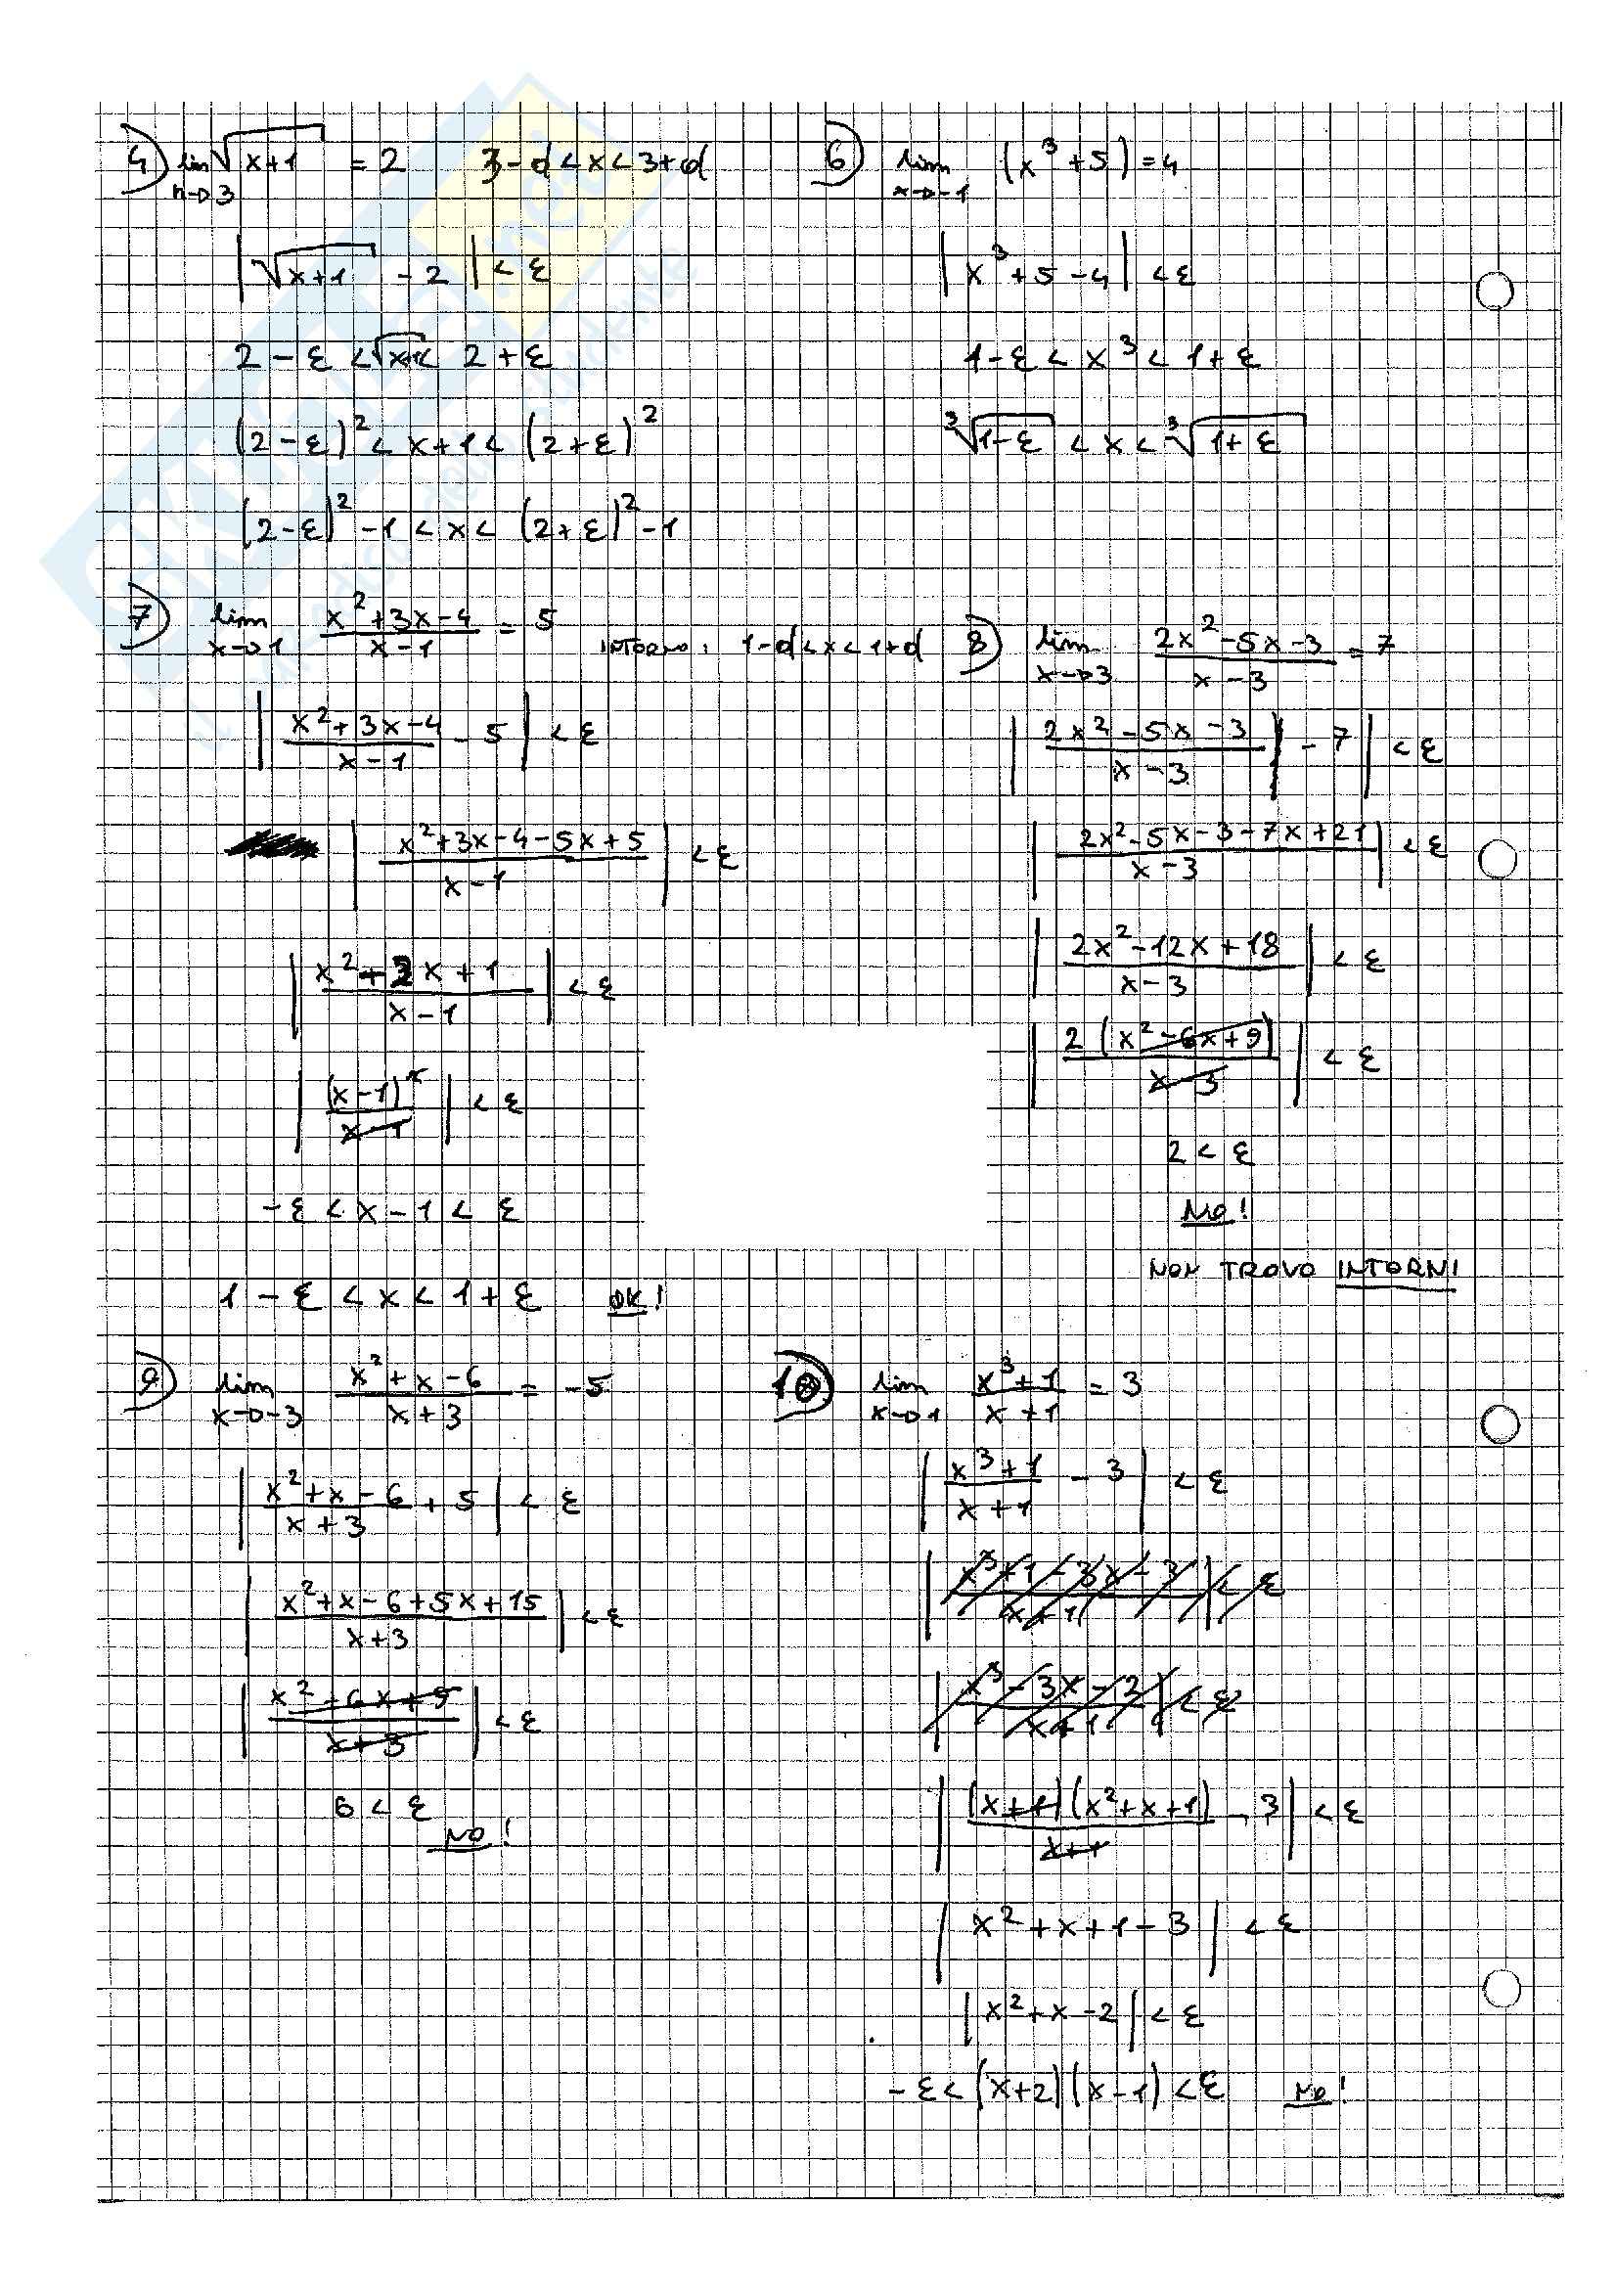 4) lim √(x+1) = 2   3-d < x < 3+d
n→3
|√(x+1) - 2| < ε
2-ε < √(x+1) < 2+ε
(2-ε)² < x+1 < (2+ε)²
(2-ε)² -1 < x < (2+ε)² -1
6) lim (x³+5) = 4
x→-1
|x³+5-4| < ε
1-ε < x³ < 1+ε
³√(1-ε) < x < ³√(1+ε)
7) lim (x²+3x-4)/(x-1) = 5   INTORNO: 1-d < x < 1+d
x→1
|(x²+3x-4)/(x-1) - 5| < ε
|(x²+3x-4-5x+5)/(x-1)| < ε
|(x²-2x+1)/(x-1)| < ε
|(x-1)²/(x-1)| < ε
-ε < x-1 < ε
1-ε < x < 1+ε   OK!
8) lim (2x²-5x-3)/(x-3) = 7
x→3
|(2x²-5x-3)/(x-3) - 7| < ε
|(2x²-5x-3-7x+21)/(x-3)| < ε
|(2x²-12x+18)/(x-3)| < ε
|2(x²-6x+9)/(x-3)| < ε
2 < ε
NO!
NON TROVO INTORNI
9) lim (x²+x-6)/(x+3) = -5
x→-3
|(x²+x-6)/(x+3) + 5| < ε
|(x²+x-6+5x+15)/(x+3)| < ε
|(x²-6x+9)/(x+3)| < ε
6 < ε
NO!
10) lim (x³+1)/(x+1) = 3
x→1
|(x³+1)/(x+1) - 3| < ε
|(x³+1-3x-3)/(x+1)| < ε
|(x³-3x-2)/(x+1)| < ε
|(x+1)(x²+x+1)/(x+1) - 3| < ε
|x²+x+1-3| < ε
|x²+x-2| < ε
-ε < (x+2)(x-1) < ε   NO!